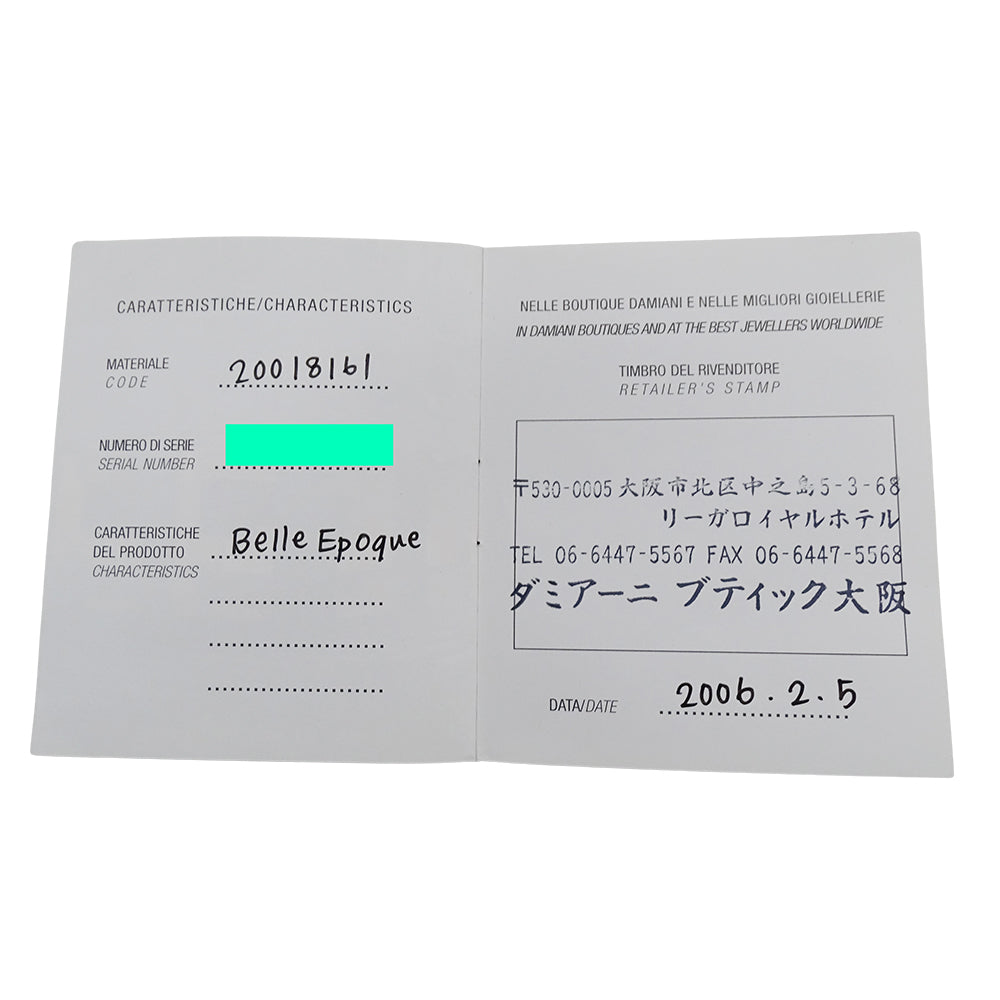 CARATTERISTICHE/CHARACTERISTICS
MATERIALE
CODE
20018161
NUMERO DI SERIE
SERIAL NUMBER
CARATTERISTICHE
DEL PRODOTTO
CHARACTERISTICS
Belle Epoque
NELLE BOUTIQUE DAMIANI E NELLE MIGLIORI GIOIELLERIE
IN DAMIANI BOUTIQUES AND AT THE BEST JEWELLERS WORLDWIDE
TIMBRO DEL RIVENDITORE
RETAILER'S STAMP
〒530-0005 大阪市北区中之島5-3-68
リーガロイヤルホテル
TEL 06-6447-5567 FAX 06-6447-5568
ダミアーニ ブティック大阪
DATA/DATE 2006.2.5